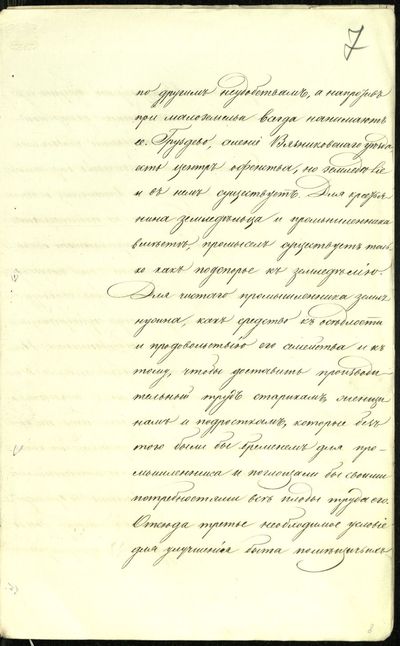 7
по другимъ неудобствамъ, а напротивъ
при малоземельи всегда нанимаютъ
ее. Груздево, селенiе Вязниковскаго уѣзда
есть центръ офенства, но земледѣлiе
и въ немъ существуетъ. Для крестья-
нина земледѣльца и промышленника
вмѣстѣ, промыселъ существуетъ толь-
ко какъ подспорье къ земледѣлiю.
Для чистаго промышленника земля
нужна, какъ средство къ осѣдлости
и продовольствiю его семейства и къ
тому, чтобы доставить производи-
тельный трудъ старикамъ, женщи
намъ и подросткамъ, которые безъ
того были бы бременемъ для про-
мышленника и поглощали бы своими
потребностями всѣ плоды труда его.
Отсюда третье необходимое условiе
для улучшенiя быта помѣщичьихъ
8